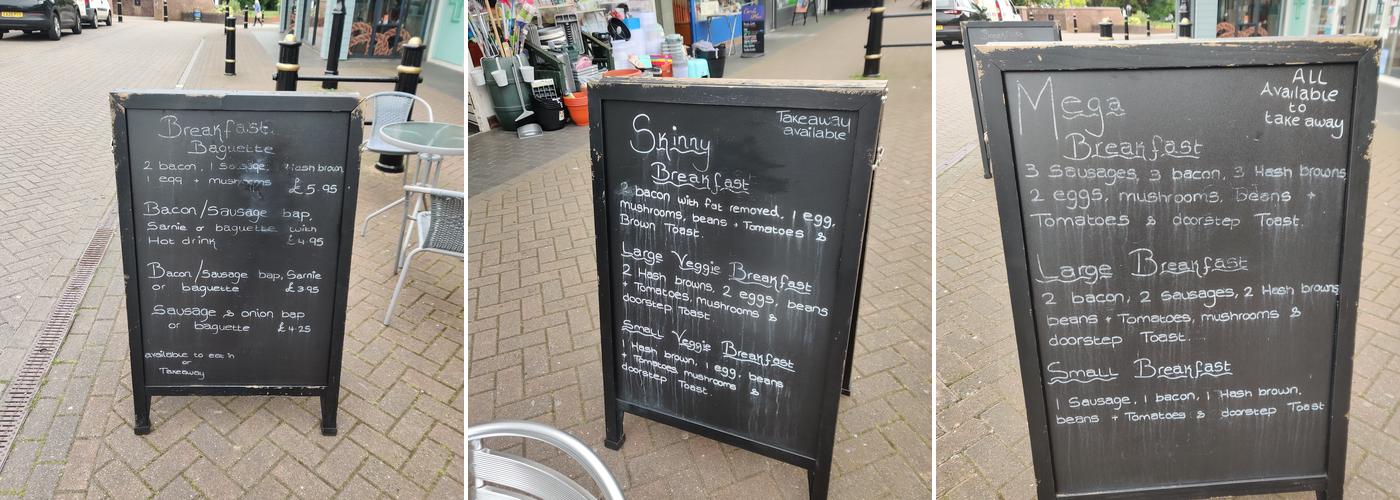 Breakfast
Baguette
2 bacon, 1 sausage, 1 Hash brown,
1 egg + mushrooms £5.95
Bacon/Sausage bap,
Sarnie or baguette with
Hot drink £4.95
Bacon/Sausage bap, Sarnie
or baguette £3.95
Sausage & onion bap
or baguette £4.25
available to eat in
or
Takeaway
Takeaway
available
Skinny
Breakfast
2 bacon with fat removed, 1 egg,
mushrooms, beans + Tomatoes &
Brown Toast.
Large Veggie Breakfast
2 Hash browns, 2 eggs, beans
+ Tomatoes, mushrooms &
doorstep Toast
Small Veggie Breakfast
1 Hash brown, 1 egg, beans
+ Tomatoes, mushrooms &
doorstep Toast.
ALL
Available
to
take away
Mega
Breakfast
3 Sausages, 3 bacon, 3 Hash browns
2 eggs, mushrooms, beans +
Tomatoes & doorstep Toast.
Large Breakfast
2 bacon, 2 Sausages, 2 Hash browns
beans + Tomatoes, mushrooms &
doorstep Toast.
Small Breakfast
1 Sausage, 1 bacon, 1 Hash brown,
beans + Tomatoes & doorstep Toast